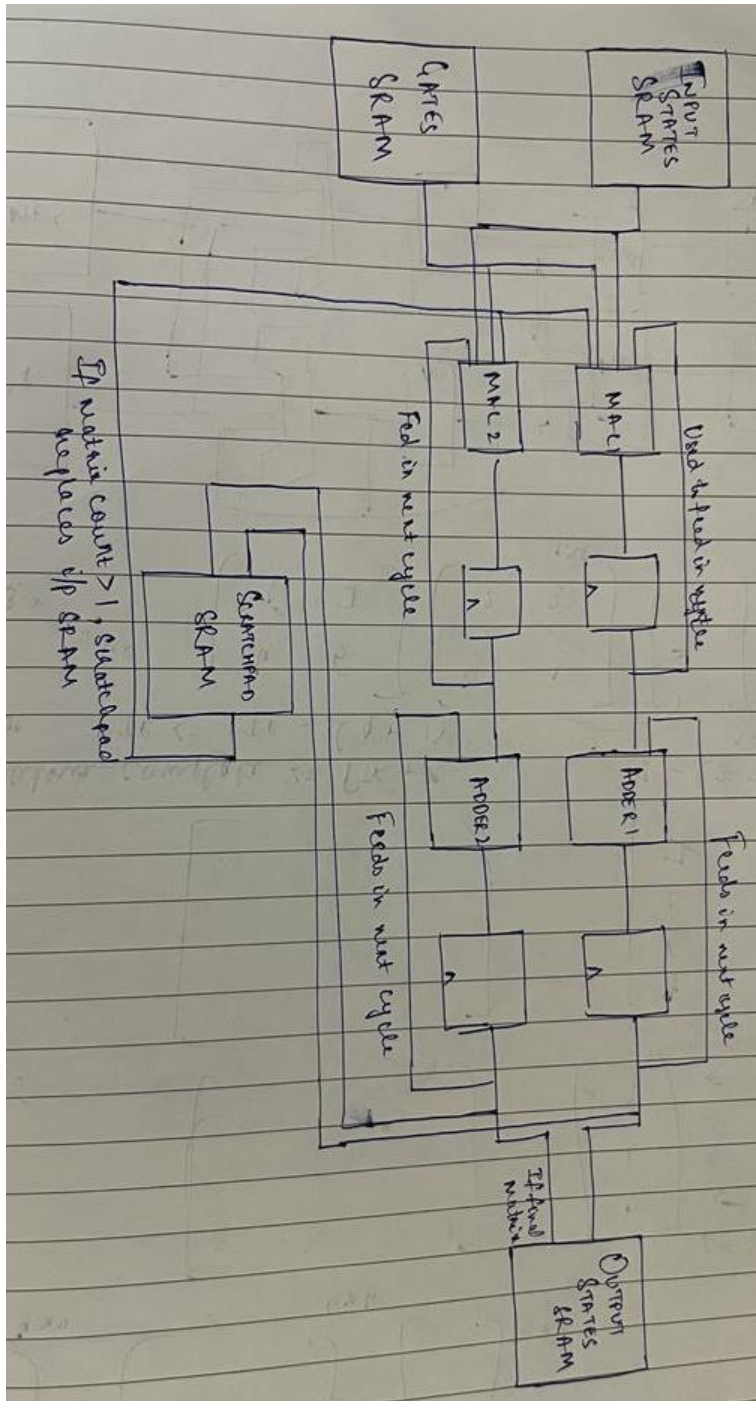 INPUT
STATES
SRAM
GATES
SRAM
MAC1
MAC2
Used to feed in
Fed in next cycle
ADDER 1
ADDER 2
Feeds in next cycle
Feeds in next cycle
SCRATCHPAD
SRAM
If matrix count > 1, Scratchpad
replaces i/p SRAM
If final
matrix
OUTPUT
STATES
SRAM